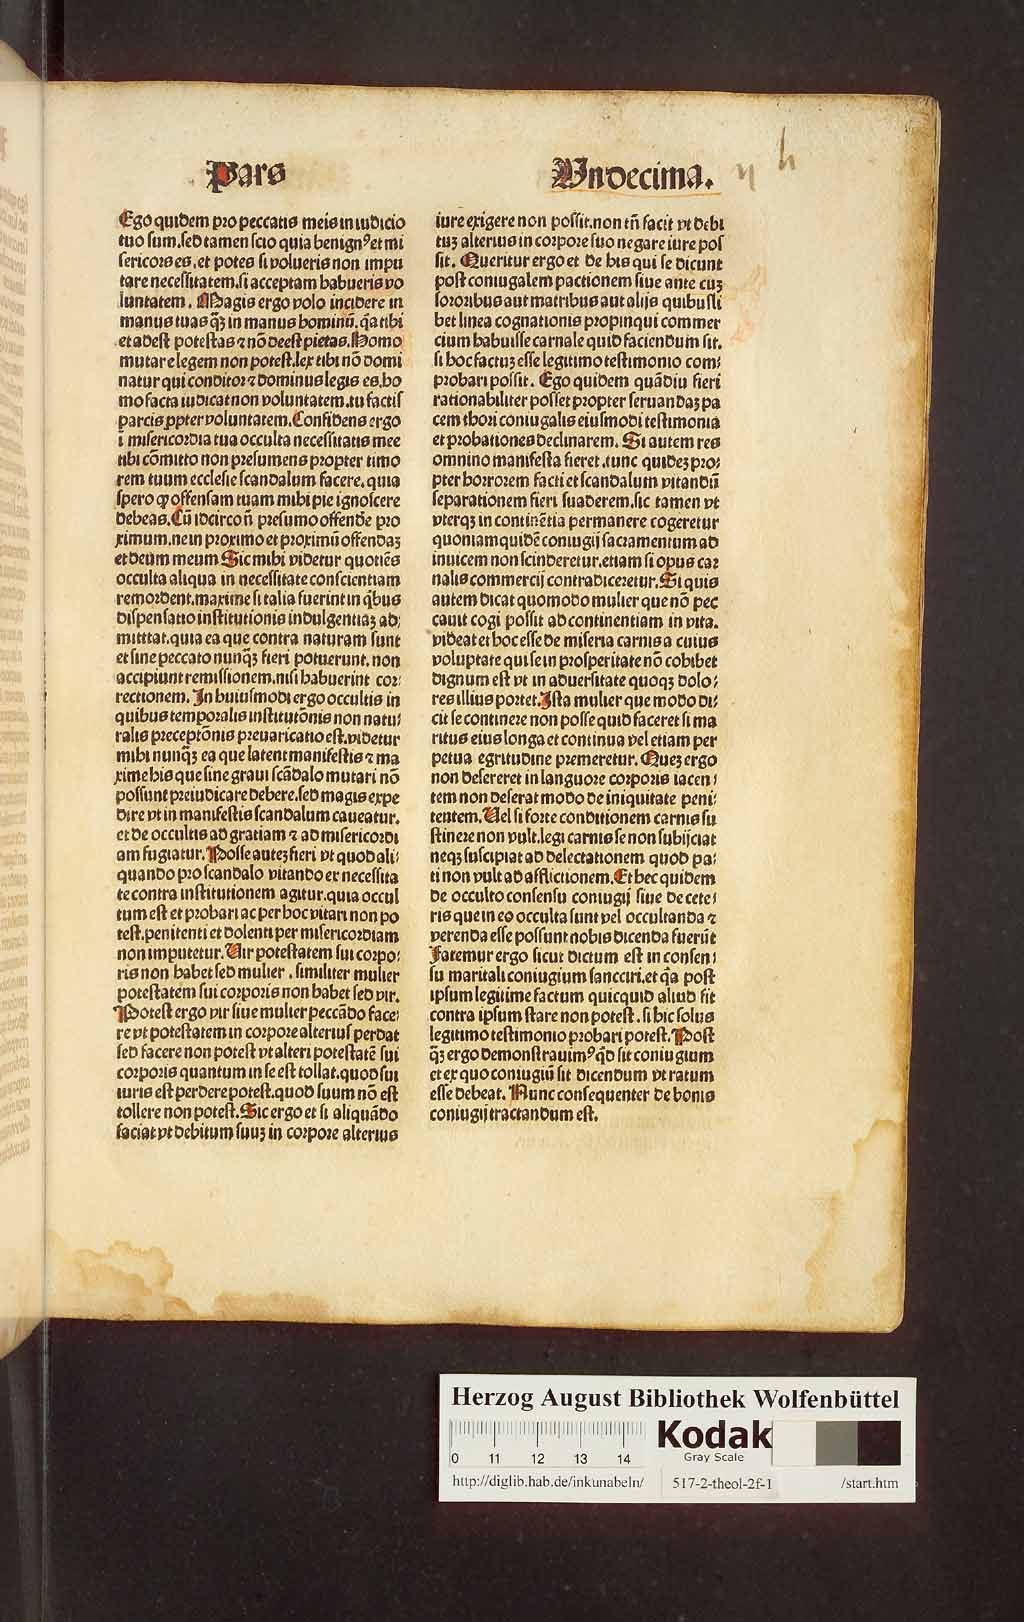 Pars
Undecima.
Ego quidem pro peccatis meis in iudicio
tuo sum. sed tamen scio quia benignꝰ et mi
sericors es. et potes si volueris non impu
tare necessitatem. si acceptam habueris vo
luntatem. Magis ergo volo incidere in
manus tuas qꝫ̃ in manus hominũ. q̃a tibi
et adest potestas ⁊ nõ deest pietas. Homo
mutare legem non potest. lex tibi nõ domi
natur qui conditor ⁊ dominus legis es. ho
mo facta iudicat non voluntatem. tu factis
parcis ꝓpter voluntatem. Confidens ergo
ĩ misericordia tua occulta necessitatis mee
tibi cõmitto non presumens propter timo
rem tuum ecclesie scandalum facere. quia
spero ꝙ offensam tuam mihi pie ignoscere
debeas. Cũ idcirco ñ presumo offendẽ pro
ximum. ne in proximo et proximũ offendaꝫ
et deum meum Sic mihi videtur quotiẽs
occulta aliqua in necessitate conscientiam
remordent. maxime si talia fuerint in q̃bus
dispensatio institutionis indulgentiaꝫ ad⸗
mitttat. quia ea que contra naturam sunt
et sine peccato nunqꝫ̃ fieri potuerunt. non
accipiunt remissionem. nisi habuerint cor⸗
rectionem. In huiusmodi ergo occultis in
quibus temporalis institutõnis non natu⸗
ralis preceptõnis preuaricatio est. videtur
mihi nunqꝫ̃ ea que latent manifestis ⁊ ma
xime his que sine graui scãdalo mutari nõ
possunt preiudicare debere. sed magis expe
dire vt in manifestis scandalum caueatur.
et de occultis ad gratiam ⁊ ad misericordi
am fugiatur. Posse auteꝫ fieri vt quod ali⸗
quando pro scandalo vitando ex necessita
te contra institutionem agitur. quia occul
tum est et probari ac per hoc vitari non po
test. penitenti et dolenti per misericordiam
non imputetur. Vir potestatem sui corpo⸗
ris non habet sed mulier. similiter mulier
potestatem sui corporis non habet sed vir.
Potest ergo vir siue mulier peccãdo face⸗
re vt potestatem in corpore alterius perdat
sed facere non potest vt alteri potestatẽ sui
corporis quantum in se est tollat. quod sui
iuris est perdere potest. quod suum nõ est
tollere non potest. Sic ergo et si aliquãdo
faciat vt debitum suuꝫ in corpore alterius
iure exigere non possit. non tñ facit vt debi
tuꝫ alterius in corpore suo negare iure pos
sit. Queritur ergo et de his qui se dicunt
post coniugalem pactionem siue ante cuꝫ
sororibus aut matribus aut alijs quibusli
bet linea cognationis propinqui commer
cium habuisse carnale quid faciendum sit.
si hoc factuꝫ esse legitimo testimonio com⸗
probari possit. Ego quidem quãdiu fieri
rationabiliter posset propter seruandaꝫ pa
cem thori coniugalis eiusmodi testimonia
et probationes declinarem. Si autem res
omnino manifesta fieret. tunc quideꝫ pro⸗
pter horrorem facti et scandalum vitandũ
separationem fieri suaderem. sic tamen vt
vterqꝫ in continẽtia permanere cogeretur
quoniam quidẽ coniugij sacramentum ad
inuicem non scinderetur. etiam si opus car
nalis commercij contradiceretur. Si quis
autem dicat quomodo mulier que nõ pec
cauit cogi possit ad continentiam in vita.
videat et hoc esse de miseria carnis a cuius
voluptate qui se in prosperitate nõ cohibet
dignum est vt in aduersitate quoqꝫ dolo⸗
res illius portet. Ista mulier que modo di⸗
cit se continere non posse quid faceret si ma
ritus eius longa et continua vel etiam per
petua egritudine premeretur. Queꝫ ergo
non desereret in languore corporis iacen⸗
tem non deserat modo de iniquitate peni⸗
tentem. Vel si forte conditionem carnis su
stinere non vult. legi carnis se non subijciat
neqꝫ suscipiat ad delectationem quod pa⸗
ti non vult ad afflictionem. Et hec quidem
de occulto consensu coniugij siue de cete⸗
ris que in eo occulta sunt vel occultanda ⁊
verenda esse possunt nobis dicenda fuerũt
Fatemur ergo sicut dictum est in consen⸗
su maritali coniugium sancciri. et q̃a post
ipsum legitime factum quicquid aliud sit
contra ipsum stare non potest. si hic solus
legitimo testimonio probari potest. Post
qꝫ̃ ergo demonstrauimꝰ qd̃ sit coniugium
et ex quo coniugiũ sit dicendum vt ratum
esse debeat. Nunc consequenter de bonis
coniugij tractandum est.
Herzog August Bibliothek Wolfenbüttel
Kodak
Gray Scale
0 11 12 13 14
http://diglib.hab.de/inkunabeln/ 517-2-theol-2f-1 /start.htm